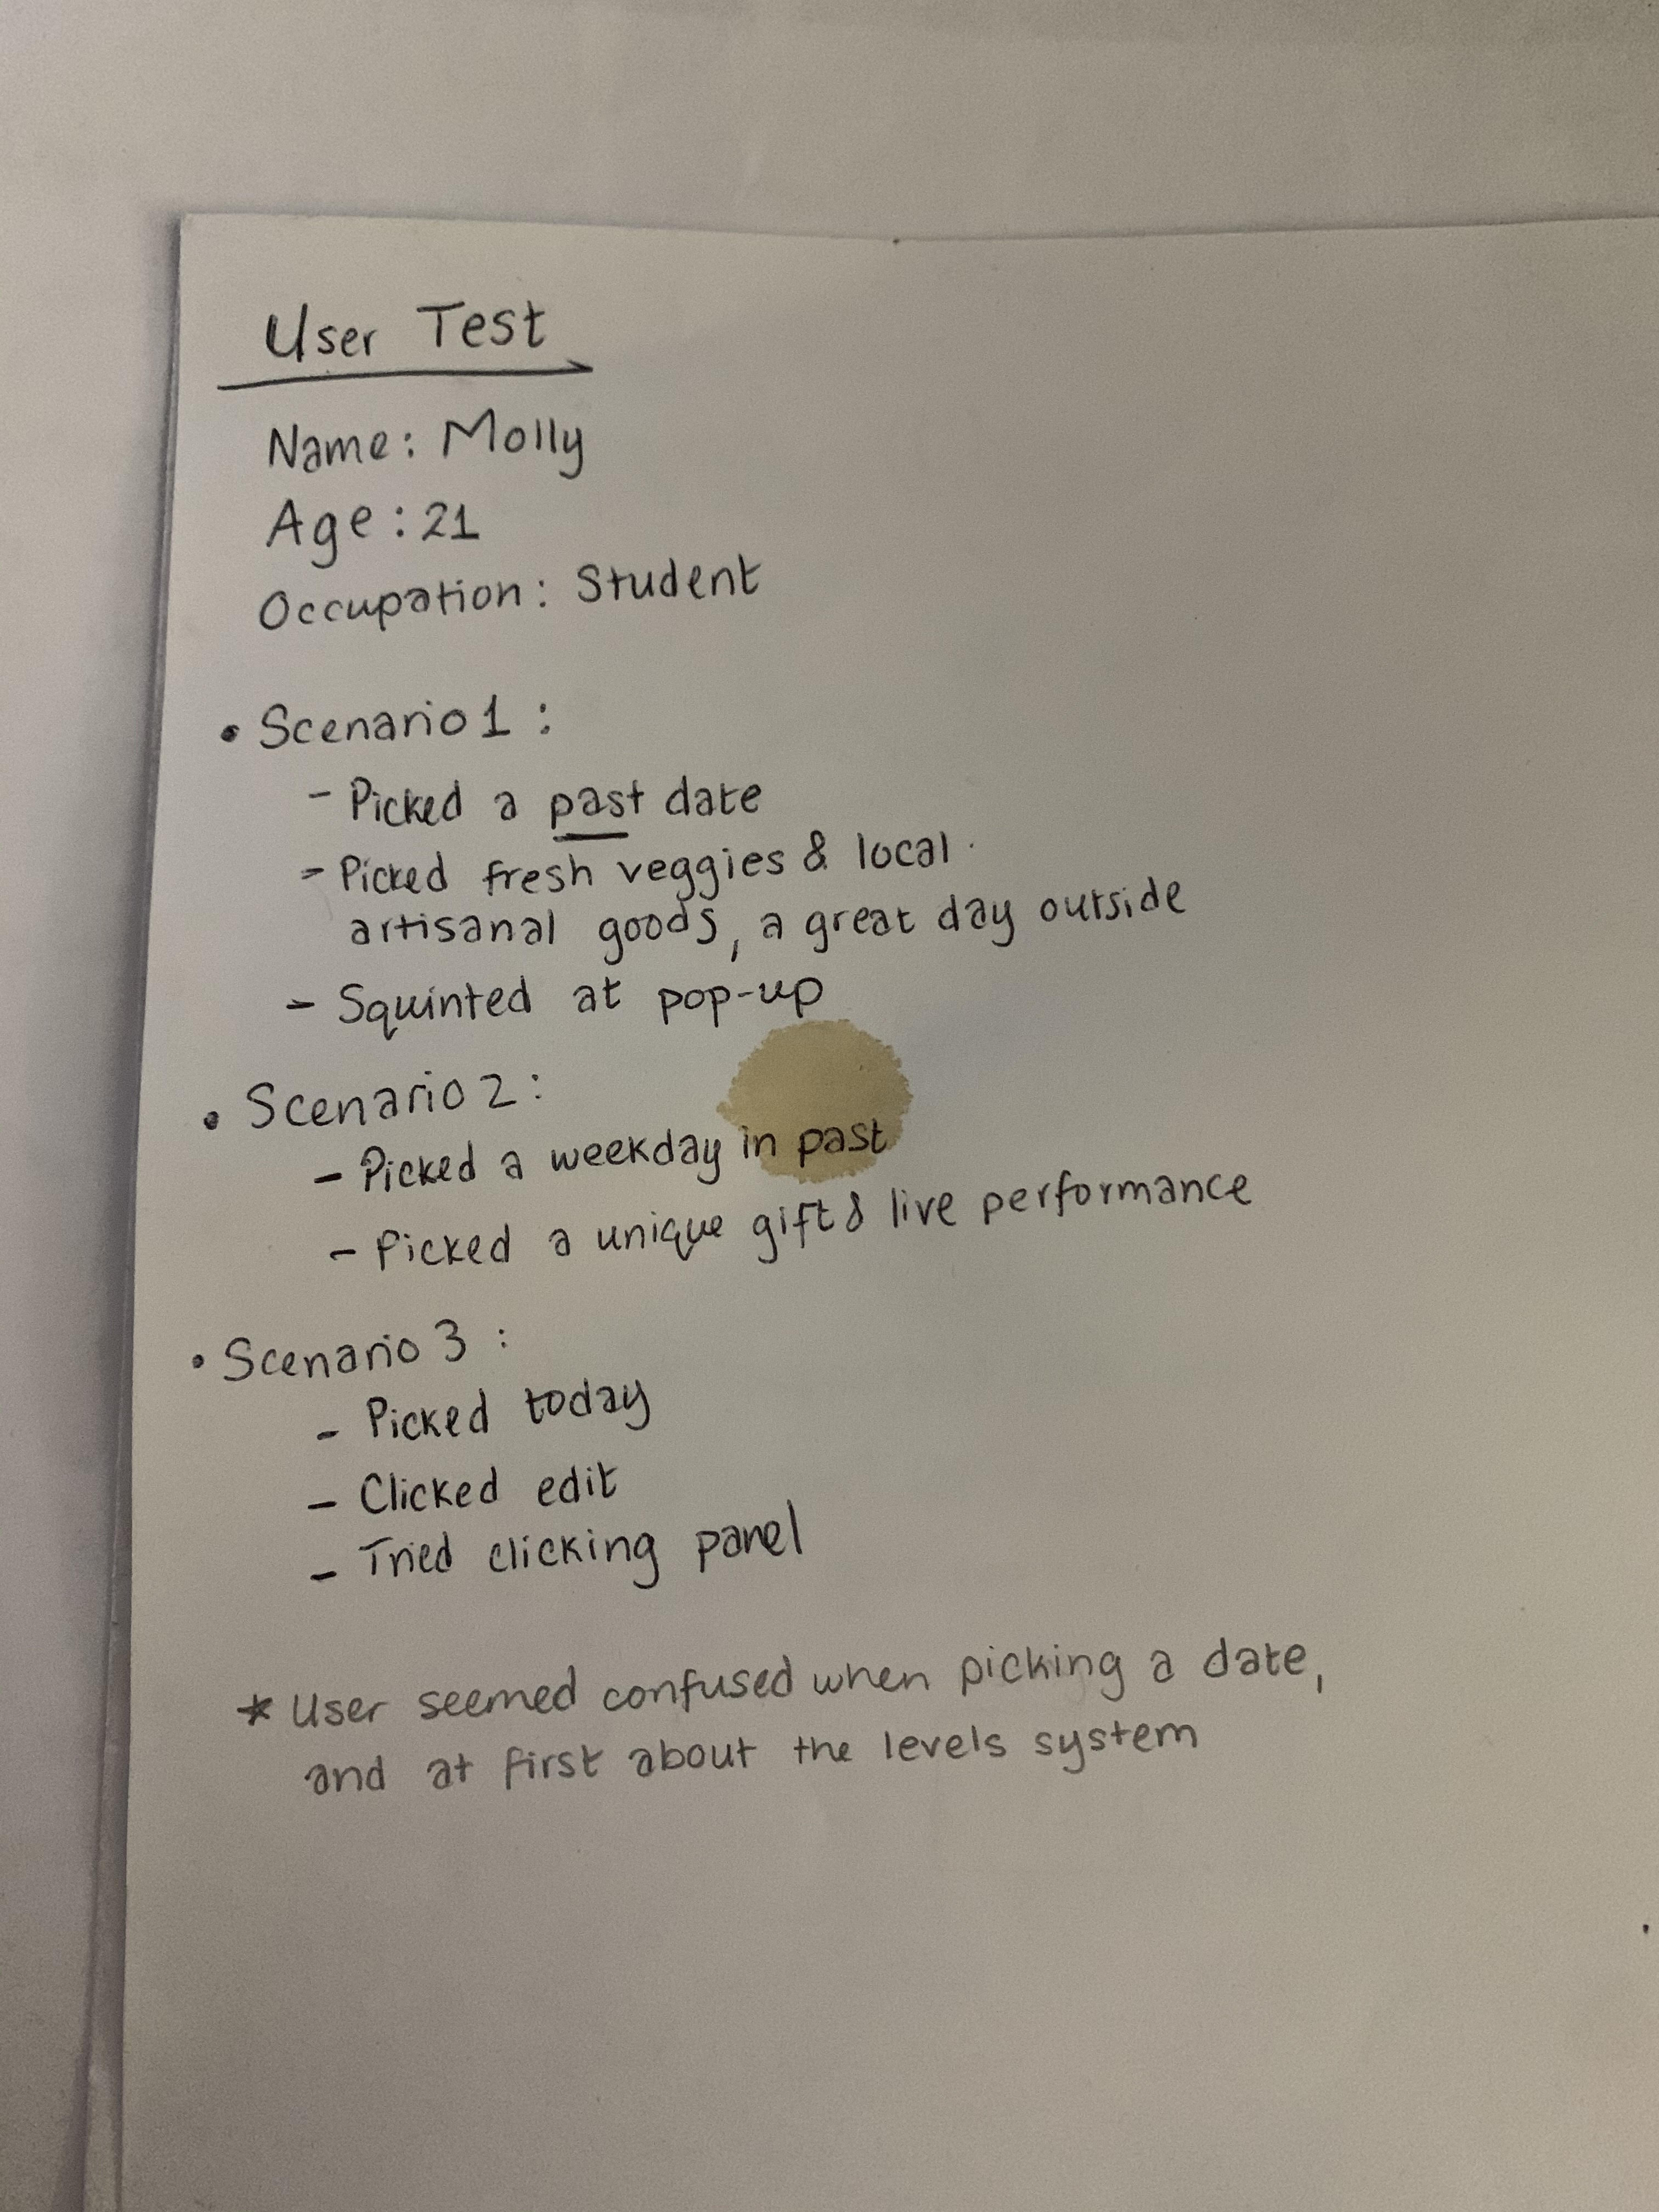 User Test
Name: Molly
Age: 21
Occupation: Student
• Scenario 1:
- Picked a past date
- Picked fresh veggies & local
artisanal goods, a great day outside
- Squinted at pop-up
• Scenario 2:
- Picked a weekday in past
- Picked a unique gift & live performance
• Scenario 3:
- Picked today
- Clicked edit
- Tried clicking panel
* User seemed confused when picking a date,
and at first about the levels system